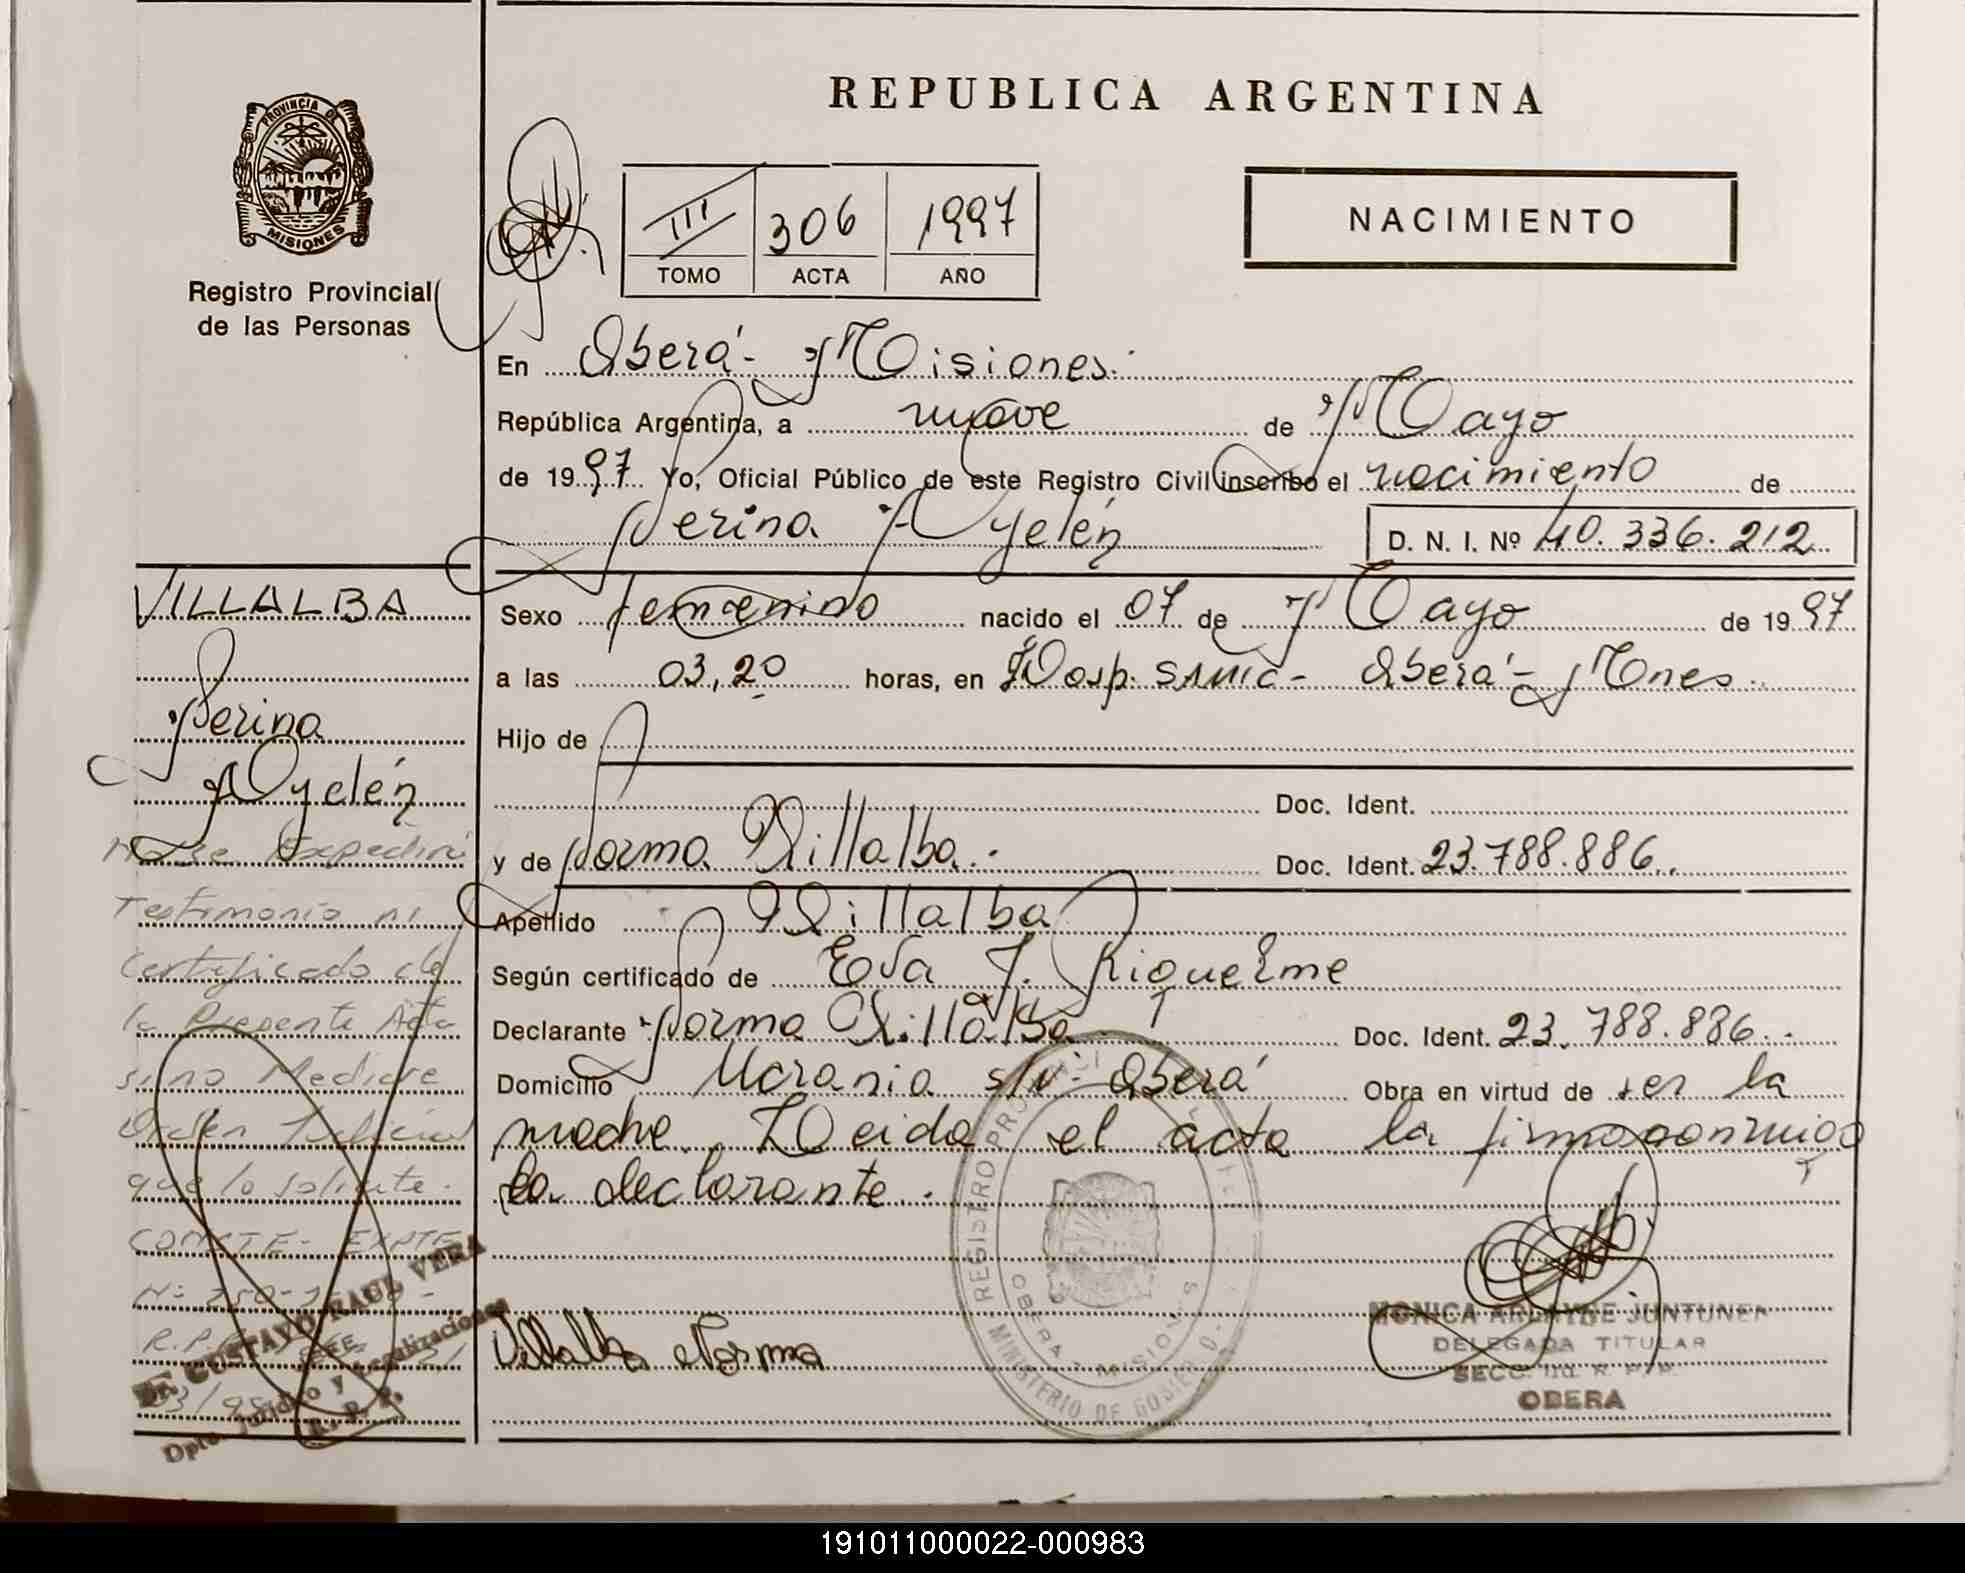 REPUBLICA ARGENTINA
PROVINCIA DE
MISIONES
Registro Provincial
de las Personas
III 306 1997
TOMO ACTA AÑO
NACIMIENTO
En Oberá - Misiones.
República Argentina, a nueve de Mayo
de 1997 Yo, Oficial Público de este Registro Civil inscribo el nacimiento de
Ayelén D. N. I. Nº 40.336.212
Sexo femenino nacido el 07 de Mayo de 1997
a las 03,20 horas, en Hosp. - Oberá - Mnes.
Hijo de
Doc. Ident.
y de Norma Villalba. Doc. Ident. 23.788.886.
Apellido Villalba
Según certificado de Eva J. Riquelme
Declarante Norma Villalba. Doc. Ident. 23.788.886.
Domicilio Ucrania s/nº Oberá Obra en virtud de ser la
madre. Leida el acta la firma conmigo
la declarante.
Villalba Norma
VILLALBA
Ayelén
No se Expedirá
Testimonio ni
Certificado de
la Presente Acta
sino Mediare
Orden Judicial
que lo solicite.
CONSTE - EXPTE
Nº
R.P.P.
Dr. GUSTAVO RAUL VERA
Dpto. Jurídico y Legalizaciones
R. P. P.
REGISTRO
OBERA - MISIONES
MINISTERIO DE GOBIERNO
MONICA ARLAYNE JUNTUNEN
DELEGADA TITULAR
SECC. R. P. P.
OBERA
191011000022-000983